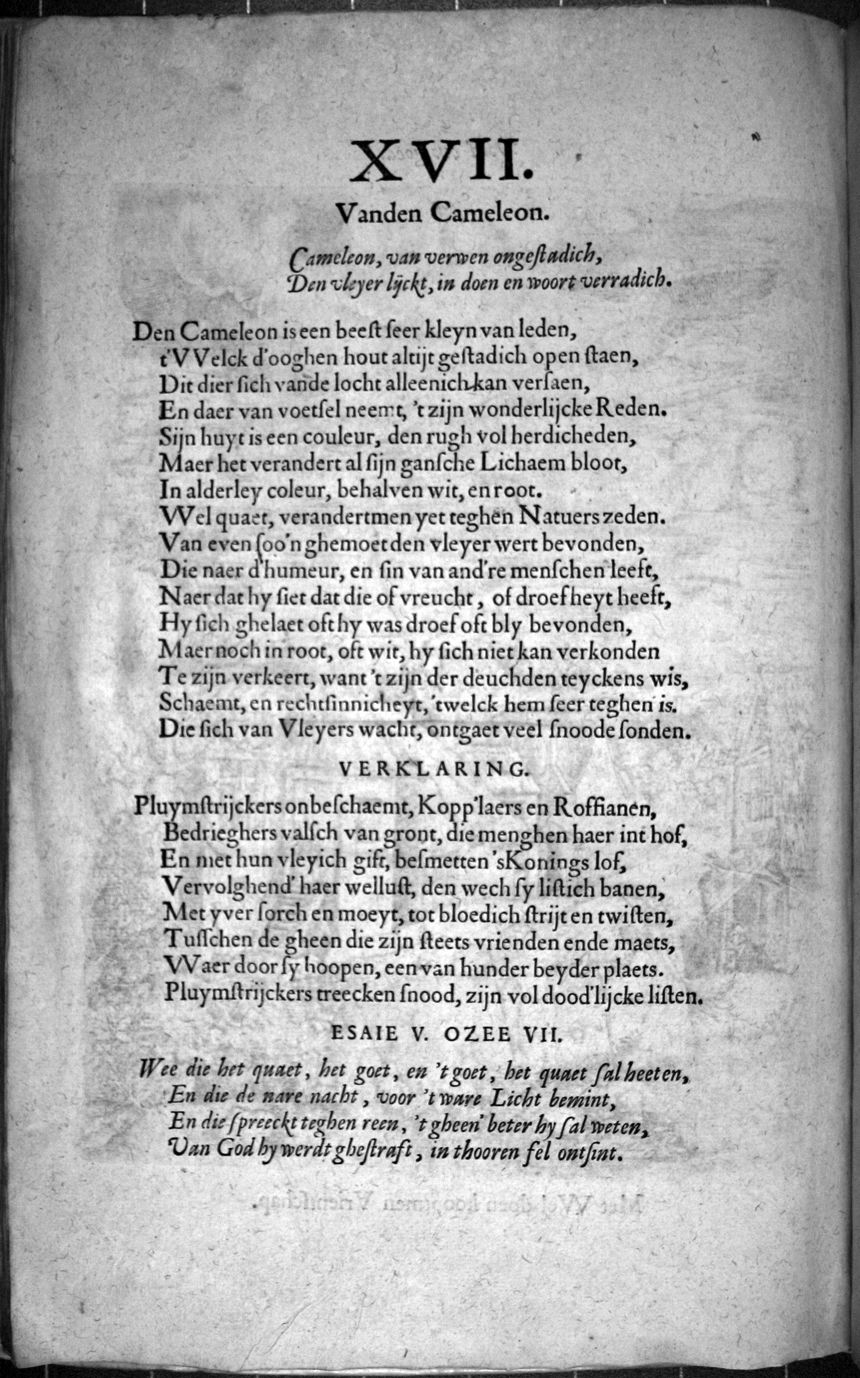 XVII.
Vanden Cameleon.
Cameleon, van verwen ongeſtadich,
Den vleyer lijckt, in doen en woort verradich.
Den Cameleon is een beeſt ſeer kleyn van leden,
t'VVelck d'ooghen hout altijt geſtadich open ſtaen,
Dit dier ſich vande locht alleenich kan verſaen,
En daer van voetſel neemt, 't zijn wonderlijcke Reden.
Sijn huyt is een couleur, den rugh vol herdicheden,
Maer het verandert al ſijn ganſche Lichaem bloot,
In alderley coleur, behalven wit, en root.
VVel quaet, verandertmen yet teghen Natuers zeden.
Van even ſoo'n ghemoet den vleyer wert bevonden,
Die naer d'humeur, en ſin van and're menſchen leeft,
Naer dat hy ſiet dat die of vreucht, of droefheyt heeft,
Hy ſich ghelaet oft hy was droef oft bly bevonden,
Maer noch in root, oft wit, hy ſich niet kan verkonden
Te zijn verkeert, want 't zijn der deuchden teyckens wis,
Schaemt, en rechtſinnicheyt, 'twelck hem ſeer teghen is.
Die ſich van Vleyers wacht, ontgaet veel ſnoode ſonden.
VERKLARING.
Pluymſtrijckers onbeſchaemt, Kopp'laers en Roffianen,
Bedrieghers valſch van gront, die menghen haer int hof,
En met hun vleyich gift, beſmetten 'sKonings lof,
Vervolghend' haer welluſt, den wech ſy liſtich banen,
Met yver ſorch en moeyt, tot bloedich ſtrijt en twiſten,
Tuſſchen de gheen die zijn ſteets vrienden ende maets,
VVaer door ſy hoopen, een van hunder beyder plaets.
Pluymſtrijckers treecken ſnood, zijn vol dood'lijcke liſten.
ESAIE V. OZEE VII.
Wee die het quaet, het goet, en 't goet, het quaet ſal heeten,
En die de nare nacht, voor 't ware Licht bemint,
En die ſpreeckt teghen reen, 't gheen' beter hy ſal weten,
Van God hy werdt gheſtraft, in thooren fel ontſint.